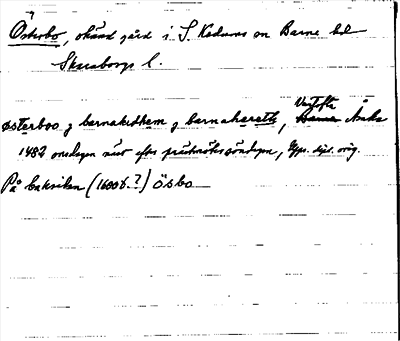 Österbo, okänd gård i S. Kedums sn Barne hd
Skaraborgs l.
østerboo j barnakedhem j barnahæreth, Åsaka
1482 onsdagen näst efter söndagen, Upps. dipl. orig.
På baksidan (1600 t. ?) Ösbo